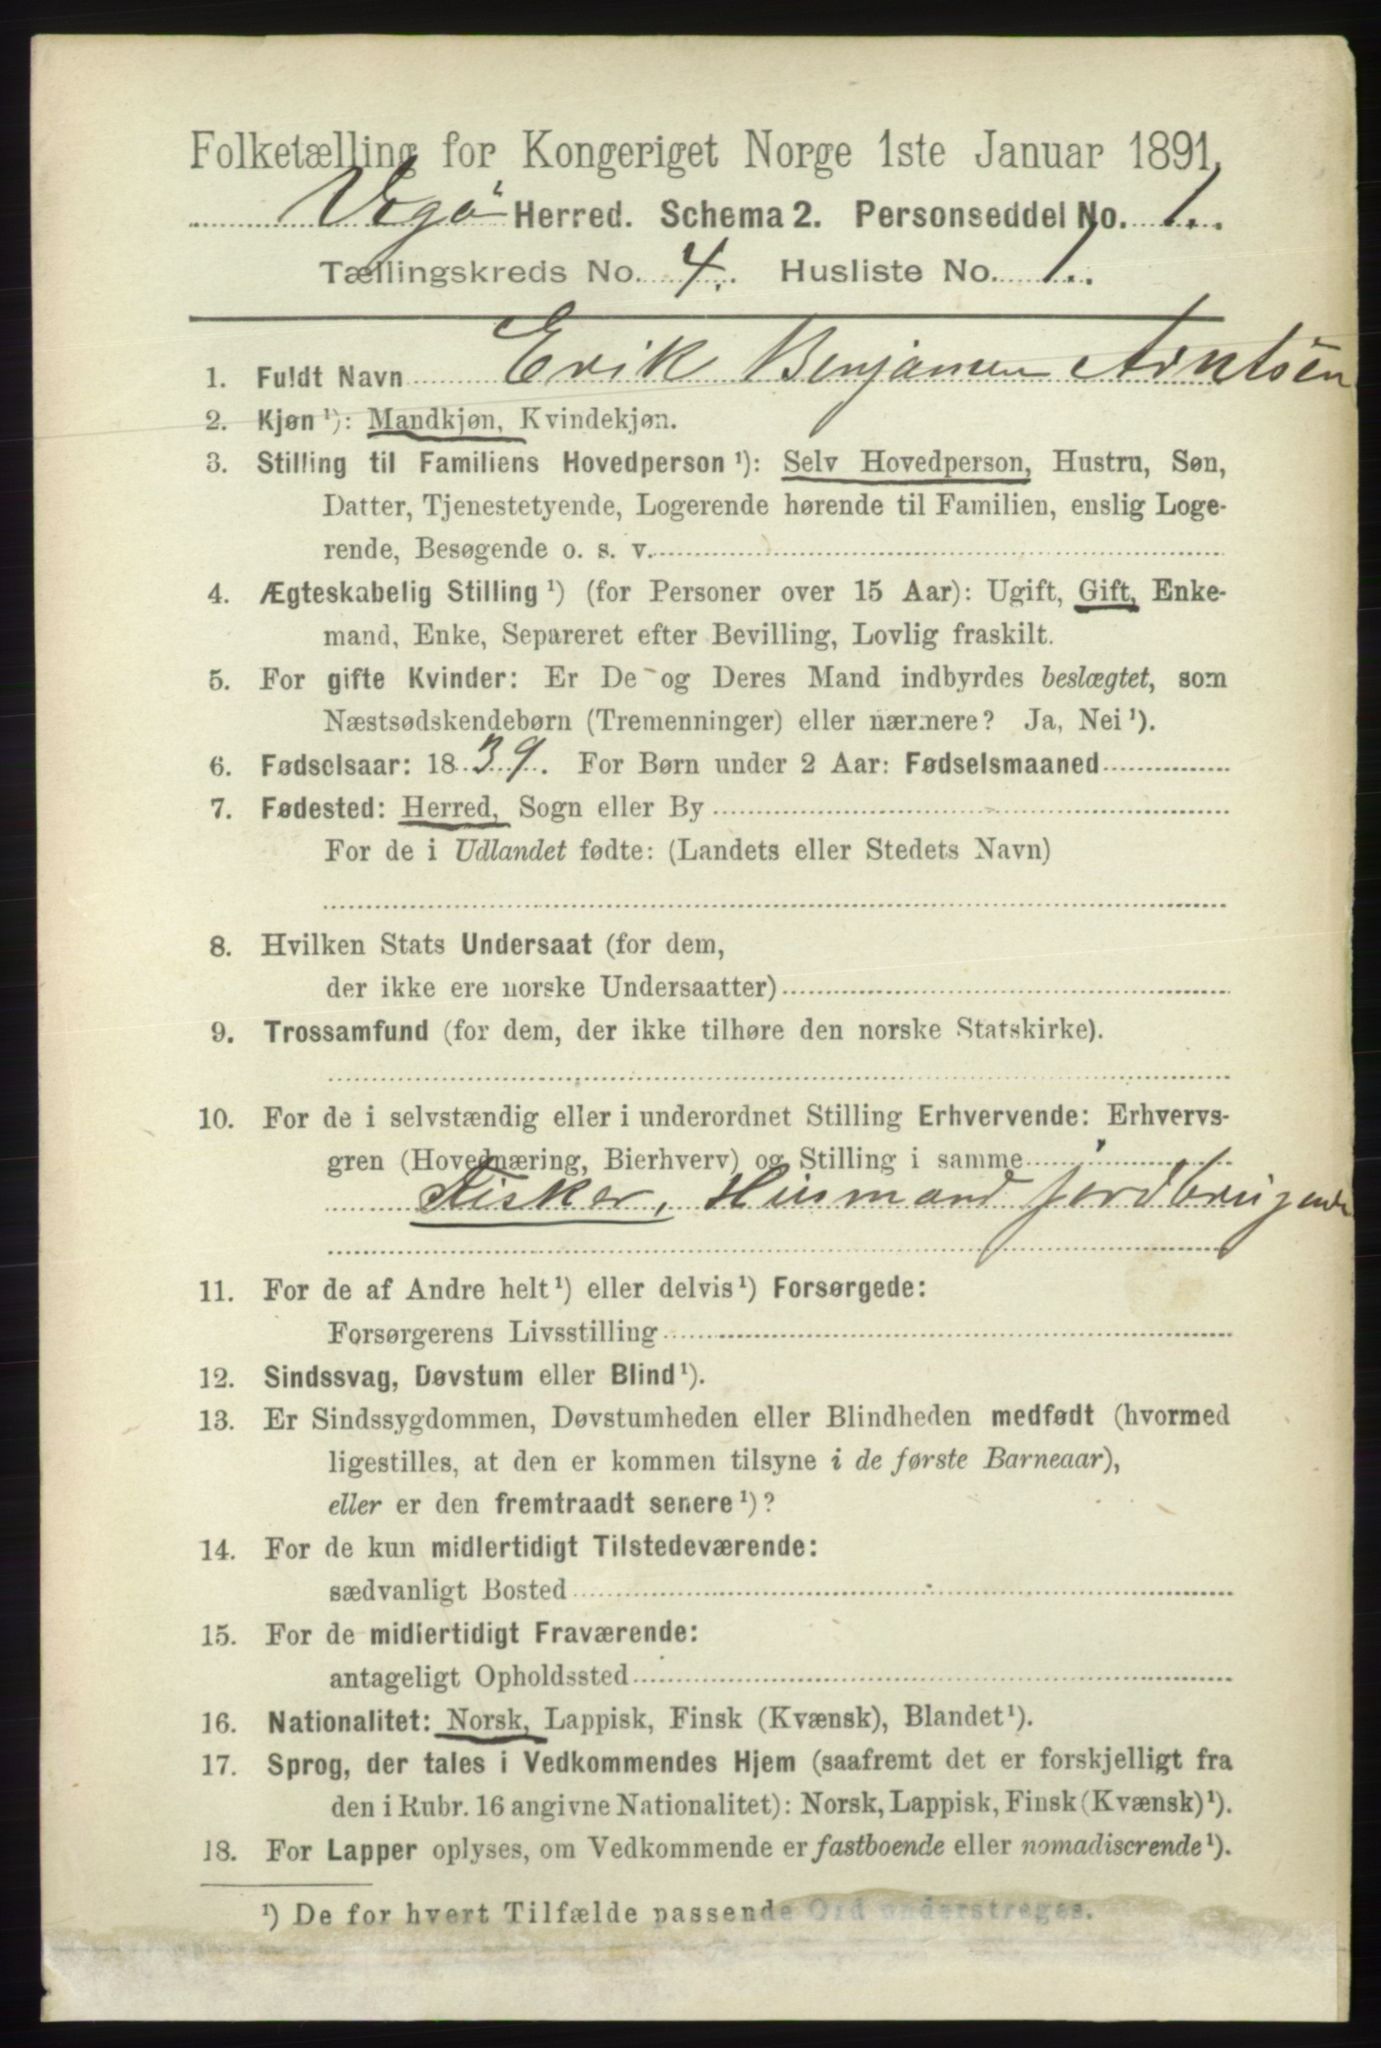 Folketælling for Kongeriget Norge 1ste Januar 1891.
Vegö Herred. Schema 2. Personseddel No. 1.
Tællingskreds No. 4. Husliste No. 1.
1. Fuldt Navn Erik Benjamen Arntsen
2. Kjøn ¹): Mandkjøn, Kvindekjøn.
3. Stilling til Familiens Hovedperson ¹): Selv Hovedperson, Hustru, Søn,
Datter, Tjenestetyende, Logerende hørende til Familien, enslig Loge-
rende, Besøgende o. s. v.
4. Ægteskabelig Stilling ¹) (for Personer over 15 Aar): Ugift, Gift, Enke-
mand, Enke, Separeret efter Bevilling, Lovlig fraskilt.
5. For gifte Kvinder: Er De og Deres Mand indbyrdes beslægtet, som
Næstsødskendebørn (Tremenninger) eller nærmere? Ja, Nei ¹).
6. Fødselsaar: 1839. For Børn under 2 Aar: Fødselsmaaned
7. Fødested: Herred, Sogn eller By
For de i Udlandet fødte: (Landets eller Stedets Navn)
8. Hvilken Stats Undersaat (for dem,
der ikke ere norske Undersaatter)
9. Trossamfund (for dem, der ikke tilhøre den norske Statskirke).
10. For de i selvstændig eller i underordnet Stilling Erhvervende: Erhvervs-
gren (Hovednæring, Bierhverv) og Stilling i samme
Fisker, Husmand jordbrugende
11. For de af Andre helt ¹) eller delvis ¹) Forsørgede:
Forsørgerens Livsstilling
12. Sindssvag, Døvstum eller Blind ¹).
13. Er Sindssygdommen, Døvstumheden eller Blindheden medfødt (hvormed
ligestilles, at den er kommen tilsyne i de første Barneaar),
eller er den fremtraadt senere ¹)?
14. For de kun midlertidigt Tilstedeværende:
sædvanligt Bosted
15. For de midlertidigt Fraværende:
antageligt Opholdssted
16. Nationalitet: Norsk, Lappisk, Finsk (Kvænsk), Blandet ¹).
17. Sprog, der tales i Vedkommendes Hjem (saafremt det er forskjelligt fra
den i Rubr. 16 angivne Nationalitet): Norsk, Lappisk, Finsk (Kvænsk) ¹).
18. For Lapper oplyses, om Vedkommende er fastboende eller nomadiserende ¹).
¹) De for hvert Tilfælde passende Ord understreges.